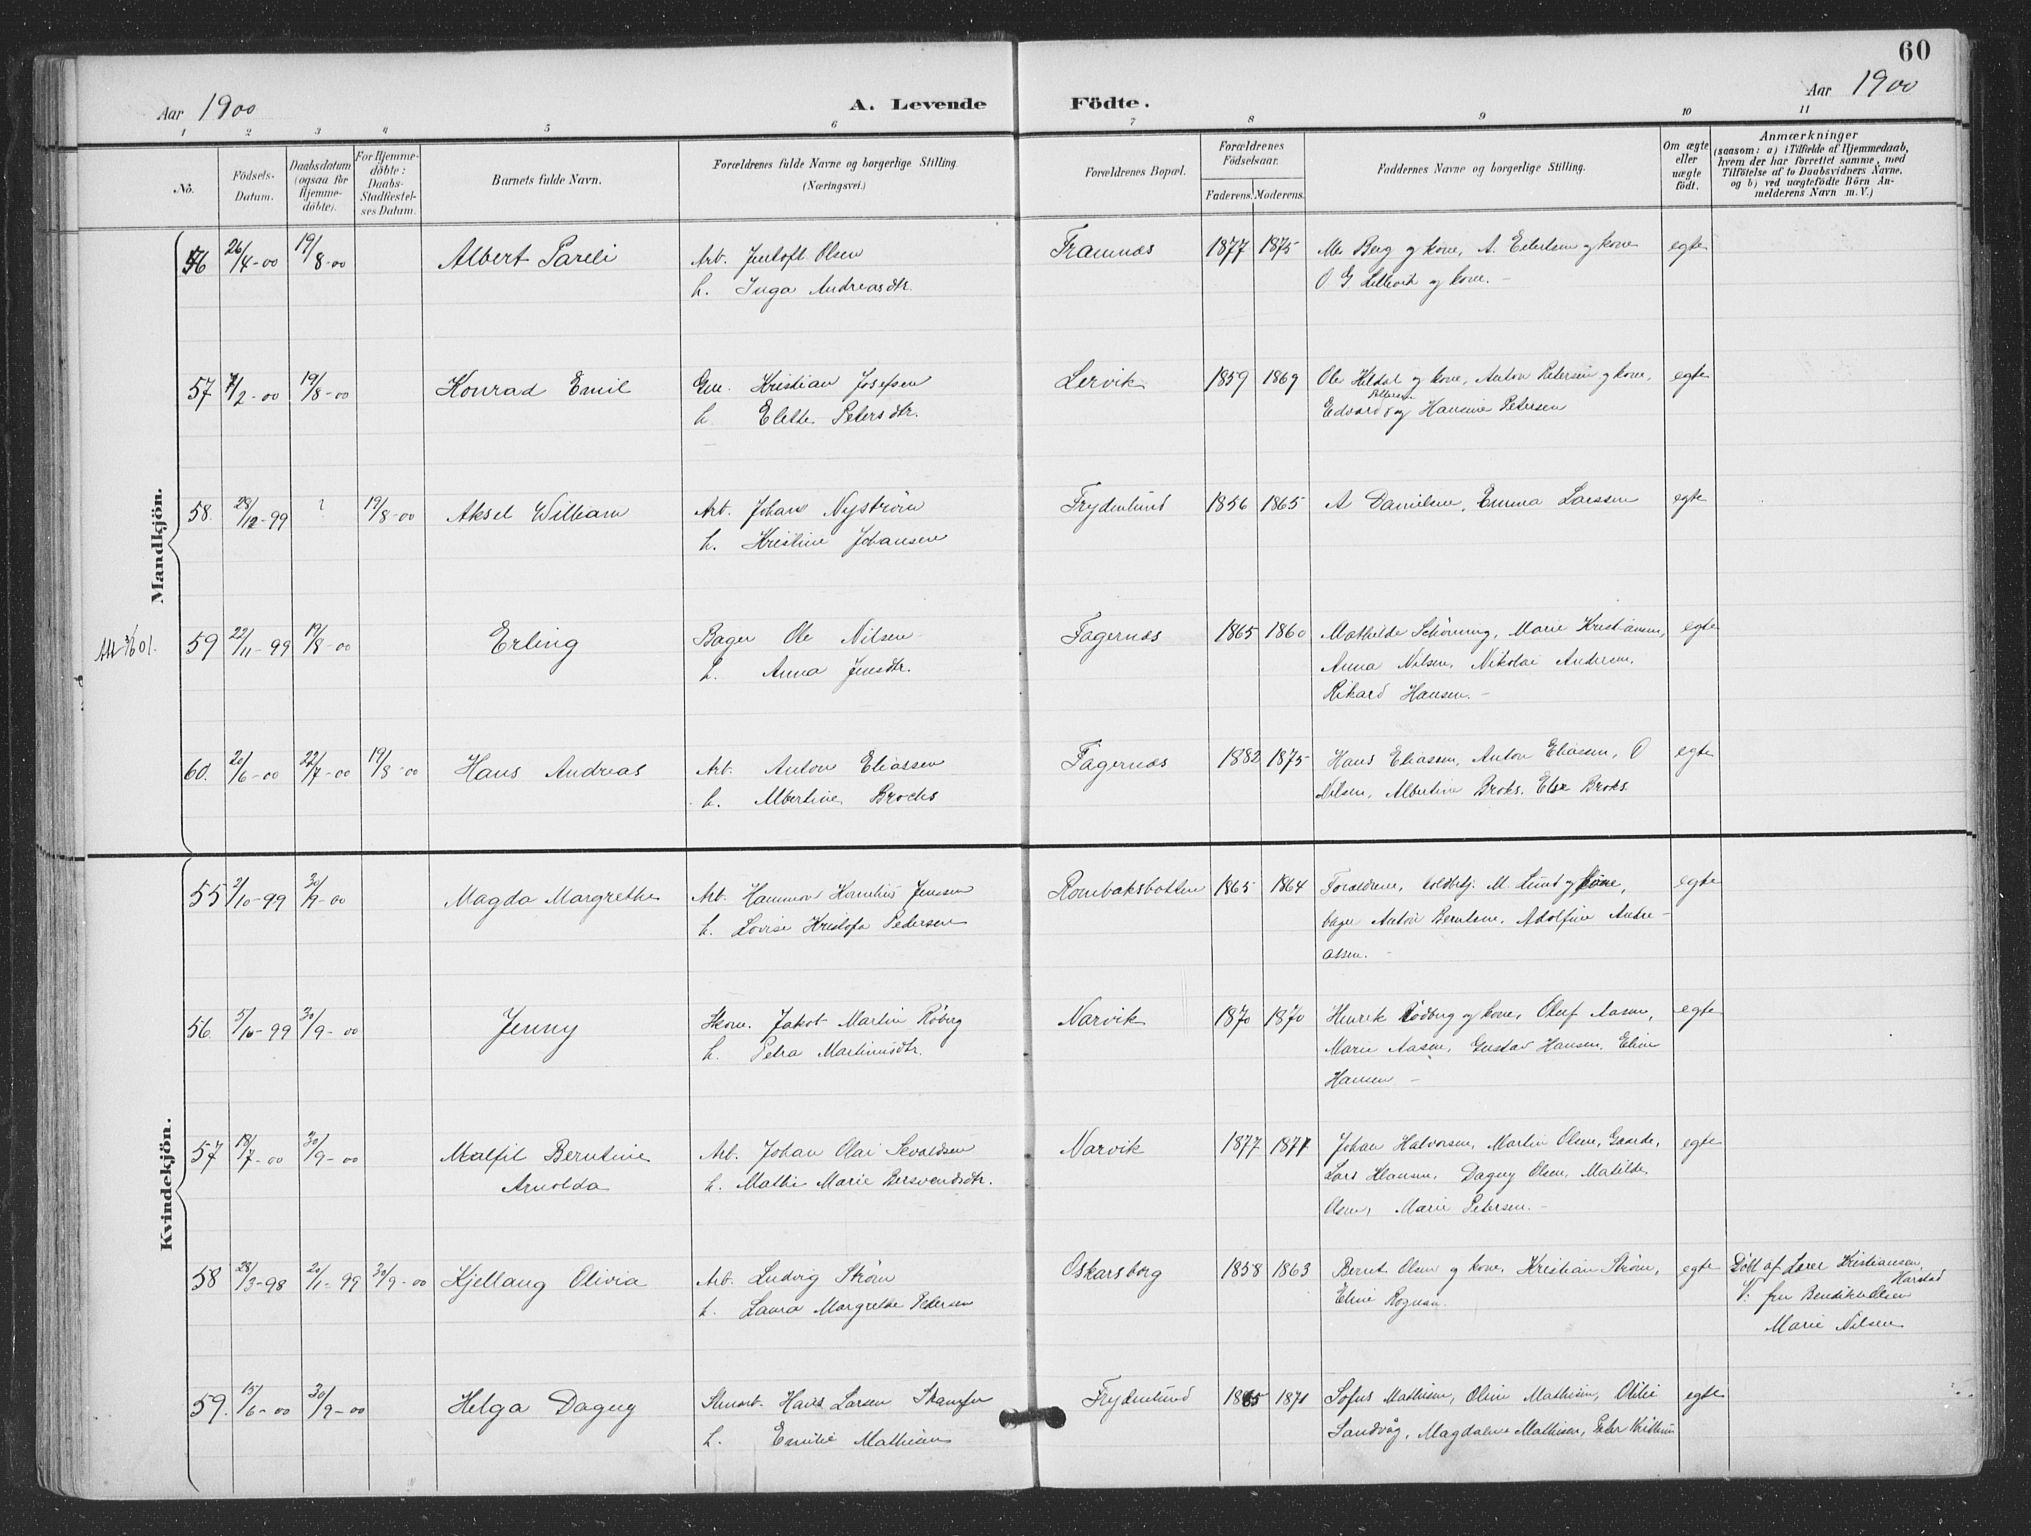 60
Aar 1900
A. Levende Födte.
Aar 1900
1 2 3 4 5 6 7 8 9 10 11
No.
Födsels-Datum.
Daabsdatum (ogsaa for Hjemme-döbte).
For Hjemme-döbte: Daabs-Stadfæstel-ses Datum.
Barnets fulde Navn.
Forældrenes fulde Navne og borgerlige Stilling.
(Næringsvei.)
Forældrenes Bopæl.
Forældrenes Fødselsaar.
Faderens. Moderens.
Faddernes Navne og borgerlige Stilling.
Om ægte eller uægte født.
Anmærkninger
(saasom: a) i Tilfælde af Hjemmedaab,
hvem der har forrettet samme, med
Tilföielse af to Daabsvidners Navne,
og b) ved uægtefödte Börn An-
melderens Navn m. V.)
Mandkjön.
56 26/4-00 19/8-00 Albert Pareli Arb. Jentoft Olsen Framnæs 1877 1875 Berg og kone, A. Eilertsen og kone egte
h. Inga Andreasdtr. O G Lillevik og kone. –
57 7/2-00 19/8-00 Konrad Emil Kristian Josefsen Lervik 1859 1869 Ole Heldal og kone, Anton Petersen og kone, egte
h. Elette Petersdtr. Edvard og Hansine Petersen
58. 28/12-99 ? 19/8-00 Aksel William Arb. Johan Nystrøm Frydenlund 1856 1865 A Danielsen, Emma Larssen egte
h. Kristine Johansen
59 22/11-99 19/8-00 Erling Bager Ole Nilsen Fagernæs 1865 1860 Mathilde Schöning, Marie Kristiansen, egte
h. Anna Jensdtr. Anna Nilsen, Nikolai Andersen,
Rikard Hansen. –
60. 20/6-00 22/7-00 19/8-00 Hans Andreas Arb. Anton Eliassen Fagernæs 1882 1875 Hans Eliassen, Anton Eliassen, O egte
h. Albertine Brochs Nilsen, Albertine Broks. Else Broks.
Kvindekjön.
55 2/10-99 30/9-00 Magda Margrethe Arb. Hammon Kornelius Jenssen Rombaksbotten 1865 1864 Forældrene, M. Lund og kone, egte
h. Lovise Kristofa Pedersen bager Anton Berntsen, Adolfine Andre-
assen. –
56. 5/10-99 30/9-00 Jenny Skom. Jakob Martin Röberg Narvik 1870 1870 Henrik Rødberg og kone, Oluf Aasen, egte
h. Petra Martinusdtr. Marie Aasen, Gustav Hansen, Eline
Hansen –
57 18/7-00 30/9-00 Malfil Berntine Arb. Johan Olai Sevaldsen Narvik 1877 1877 Johan Halvorsen, Martin Olsen, Gaarde, egte
Arnolda h. Mathi Marie Bersvendsdtr. Lars Hansen, Dagny Olsen, Matilde
Olsen, Marie Petersen. –
58 28/3-98 20/11-99 30/9-00 Kjellaug Olivia Arb. Ludvig Strøm Oskarsborg 1858 1863 Bernt Olsen og kone, Kristian Strøm, egte Döbt af Lærer Kristiansen,
h. Laura Margrethe Pedersen Eline Rognan. Harstad
V: fru Benedikte Olsen
Marie Nilsen
59. 15/6-00 30/9-00 Helga Dagny Stenarb. Hans Larsen Skamfer Frydenlund 1865 1871 Sofus Mathisen, Oline Mathisen, Otilie egte
h. Emilie Mathisen Sandvåg, Magdalene Mathisen, Peter